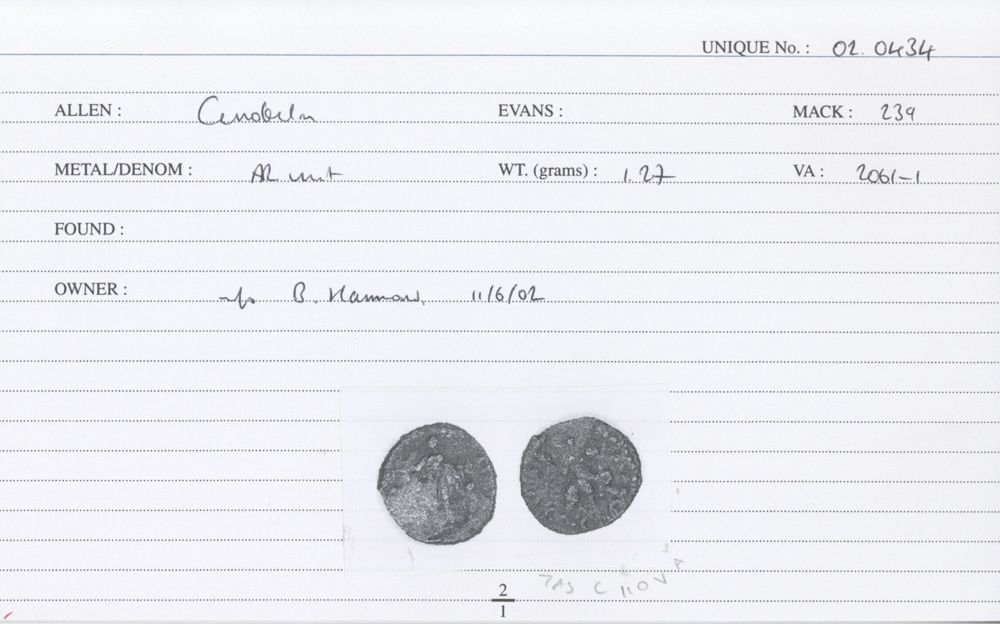 UNIQUE No. : 02.0434
ALLEN : Cunobelin EVANS : MACK : 239
METAL/DENOM : AR unit WT. (grams) : 1.27 VA : 2061-1
FOUND :
OWNER : B. 11/6/02
TAS C
2
1